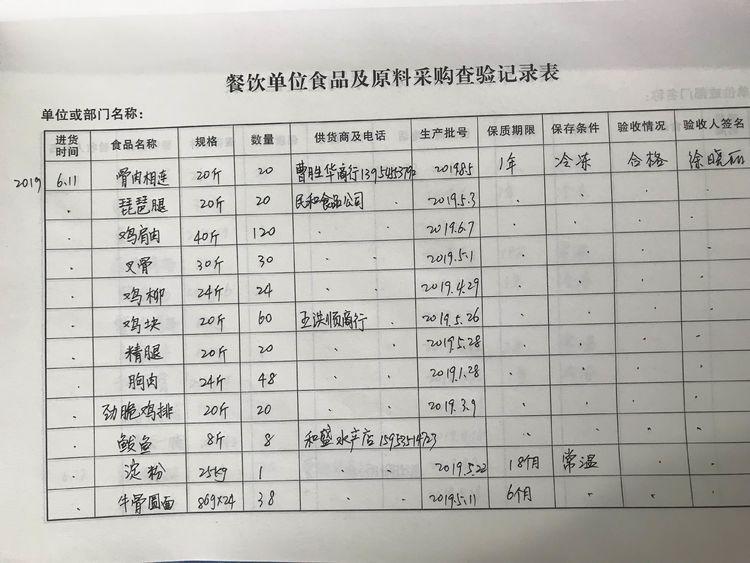 餐饮单位食品及原料采购查验记录表
单位或部门名称：
进货时间 食品名称 规格 数量 供货商及电话 生产批号 保质期限 保存条件 验收情况 验收人签名
2019 6.11 骨肉相连 20斤 20 曹胜华商行 2019.8.5 1年 冷冻 合格 徐晓丽
· 琵琶腿 20斤 20 民和食品公司 2019.5.3 · · · ·
· 鸡肩肉 40斤 120 · · 2019.6.7 · · · ·
· 叉骨 30斤 30 · · 2019.5.1 · · · ·
· 鸡柳 24斤 24 · · 2019.4.29 · · · ·
· 鸡块 20斤 60 王洪顺商行 · 2019.5.26 · · · ·
· 精腿 20斤 20 · · 2019.5.28 · · · ·
· 胸肉 24斤 48 · · 2019.1.28 · · · ·
· 劲脆鸡排 20斤 20 · · 2019.3.9 · · · ·
· 鲅鱼 8斤 8 和盛水产店 15953514723 · · · · ·
· 淀粉 25kg 1 · · 2019.5.22 18个月 常温 · ·
· 牛骨圆面 86g×24 38 · · 2019.5.11 6个月 · · ·